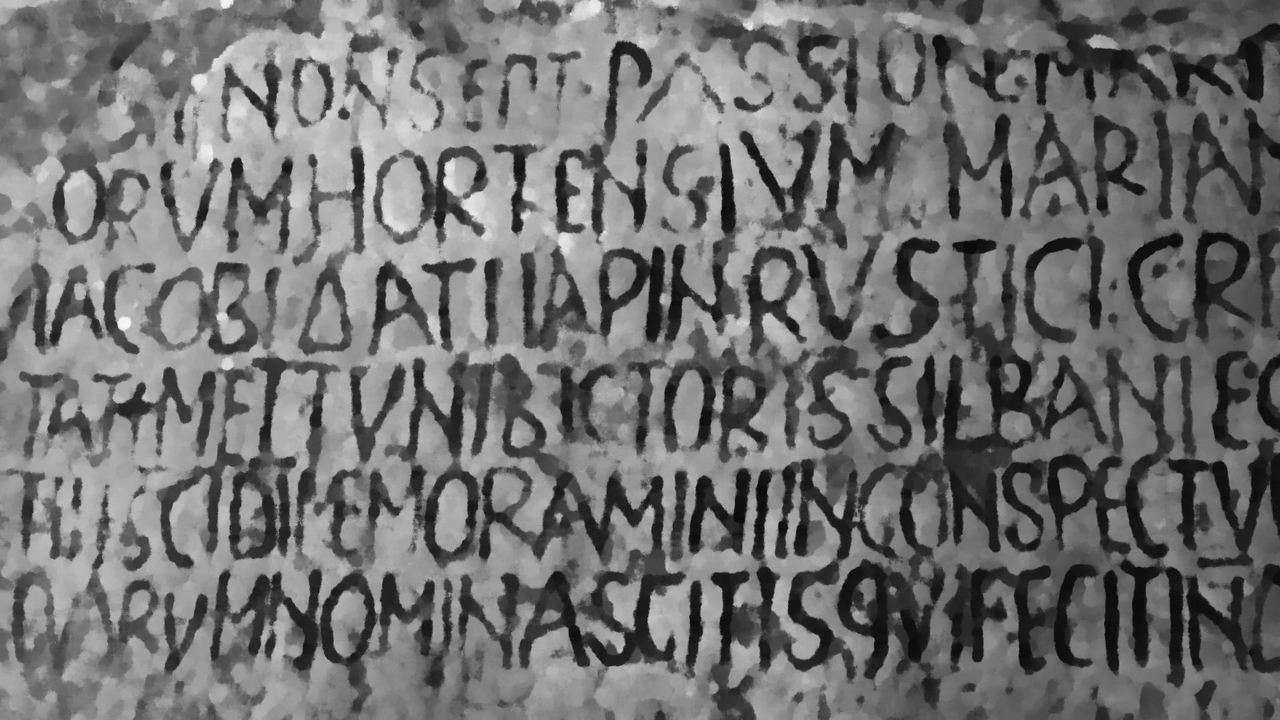 NON SEPT PASSIONE MART
ORVM HORTENSIVM MARIAN
IACOBI DATI IAPIN RVSTICI CRE
TATI METTVNI BICTORIS SILBANI
MEMORAMINI IN CONSPECTV
QVARVM NOMINA SCIT IS QVI FECIT IN